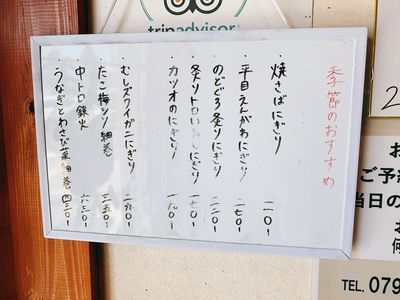 tripadvisor
季節のおすすめ
・焼さばにぎり 一一〇-
・平目えんがわにぎり 一七〇-
・のどぐろ炙りにぎり 二二〇-
・炙りトロいわしにぎり 一七〇-
・カツオのにぎり 一九〇-
・むしズワイガニにぎり 二九〇-
・たこ梅シソ細巻 三五〇-
・中トロ鉄火 六三〇-
・うなぎとわさび菜細巻 四三〇-
ご予約
当日の
TEL. 079